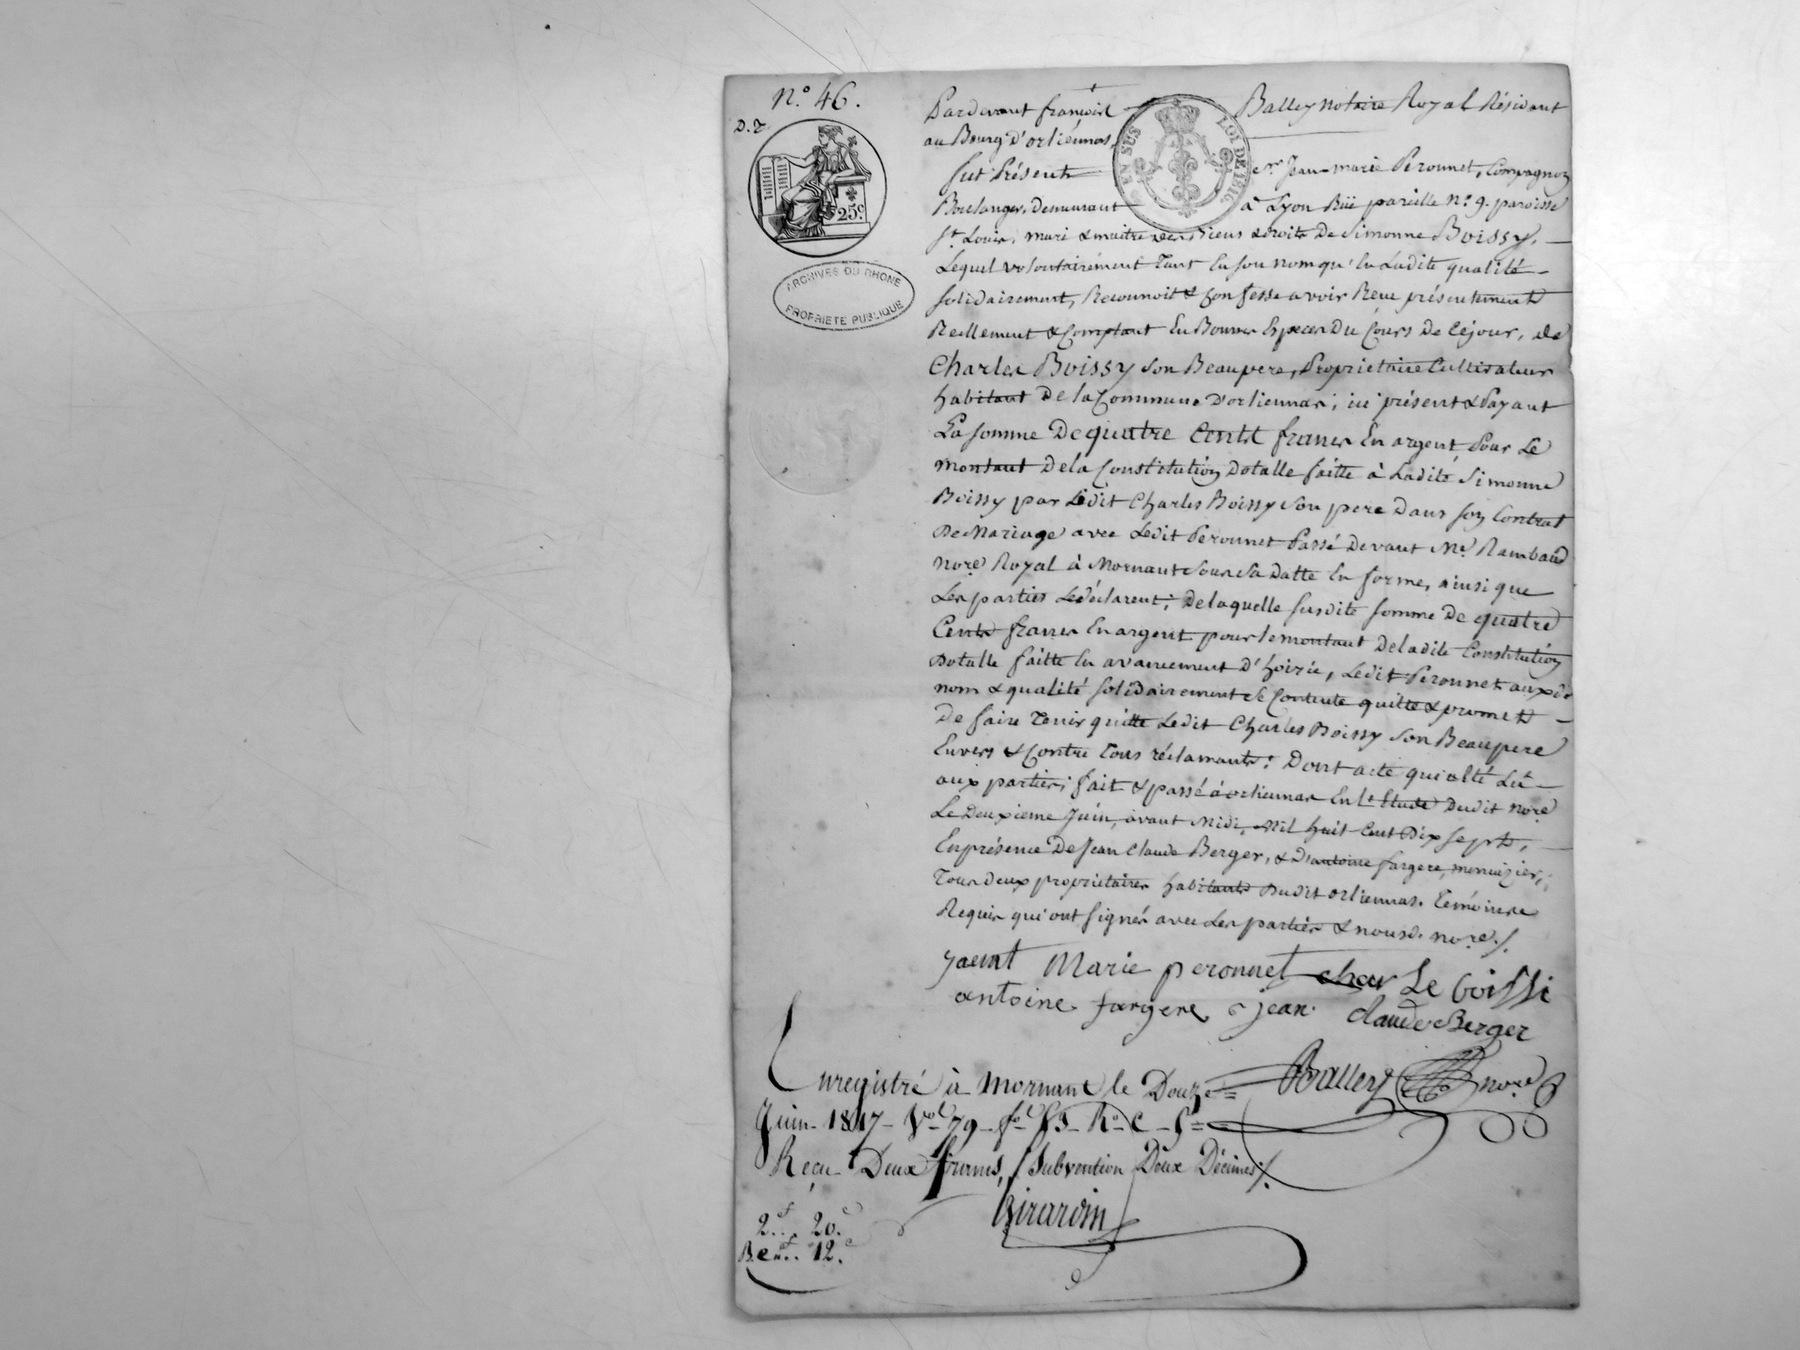 N.o 46.
D. T.
25c
ARCHIVES DU RHONE
PROPRIETE PUBLIQUE
EN SUS
LOI DE 1816
Pardevant françois Balley notaire Royal Résidant
au Bourg d'orliénnas,
fut Présent le sr. Jean-marie Peronnet, Compagnon
Boulanger, demeurant à Lyon Rüe pareille N.o 9. paroisse
st Louis, mari & maitre des Biens & droits De Simonne Boissy,
Lequel volontairément Tant En son nom qu'En Ladite qualité
solidairement, Reconnoit & Confesse avoir Reçu présentement
Réellement & Comptant En Bonnes Especes Du Cours de Céjour, de
Charles Boissy son Beaupere, Proprietaire Cultivateur
habitant De la Commune D'orliennas, ici présent & Payant
La somme De quatre Cents francs En argent Pour Le
montant De la Constitution Dotalle faitte à Ladite Simonne
Boissy par Ledit Charles Boissy son pere Dans son Contrat
De Mariage avec Ledit Peronnet Passé Devant Me. Rambaud
nore. Royal à Mornant sous sa Datte En forme, ainsi que
Les parties Le déclarent; De laquelle susdite somme De quatre
Cents francs En argent pour le montant De ladite Constitution
Dotalle faitte En avancement d'hoirie, Ledit Peronnet auxdts
nom & qualité solidairement se Contente quitte & promet
De faire Tenir quitte Ledit Charles Boissy son Beaupere
Envers & Contre Tous réclamants: Dont acte qui a été Lû
aux parties; fait & passé à orliennas En L'Etude Dudit nore.
Le Deuxieme Juin, avant Midi, Mil huit Cent Dix sept,
En présence De Jean Claude Berger, & D'antoine fargere, menuizier,
Tous deux proprietaires habitants Dudit orliennas. Témoins
Requis qui ont signés avec Les parties & nousd. nore./.
Marie peronnet charLe boissi
antoine fargere jean claude Berger
Balley nore
Enregistré à Mornant le Douze
Juin 1817 Vol 79 fo Ro C
Reçu Deux francs, Subvention Deux Décimes/.
Girardin
2f.. 20.c
12.c